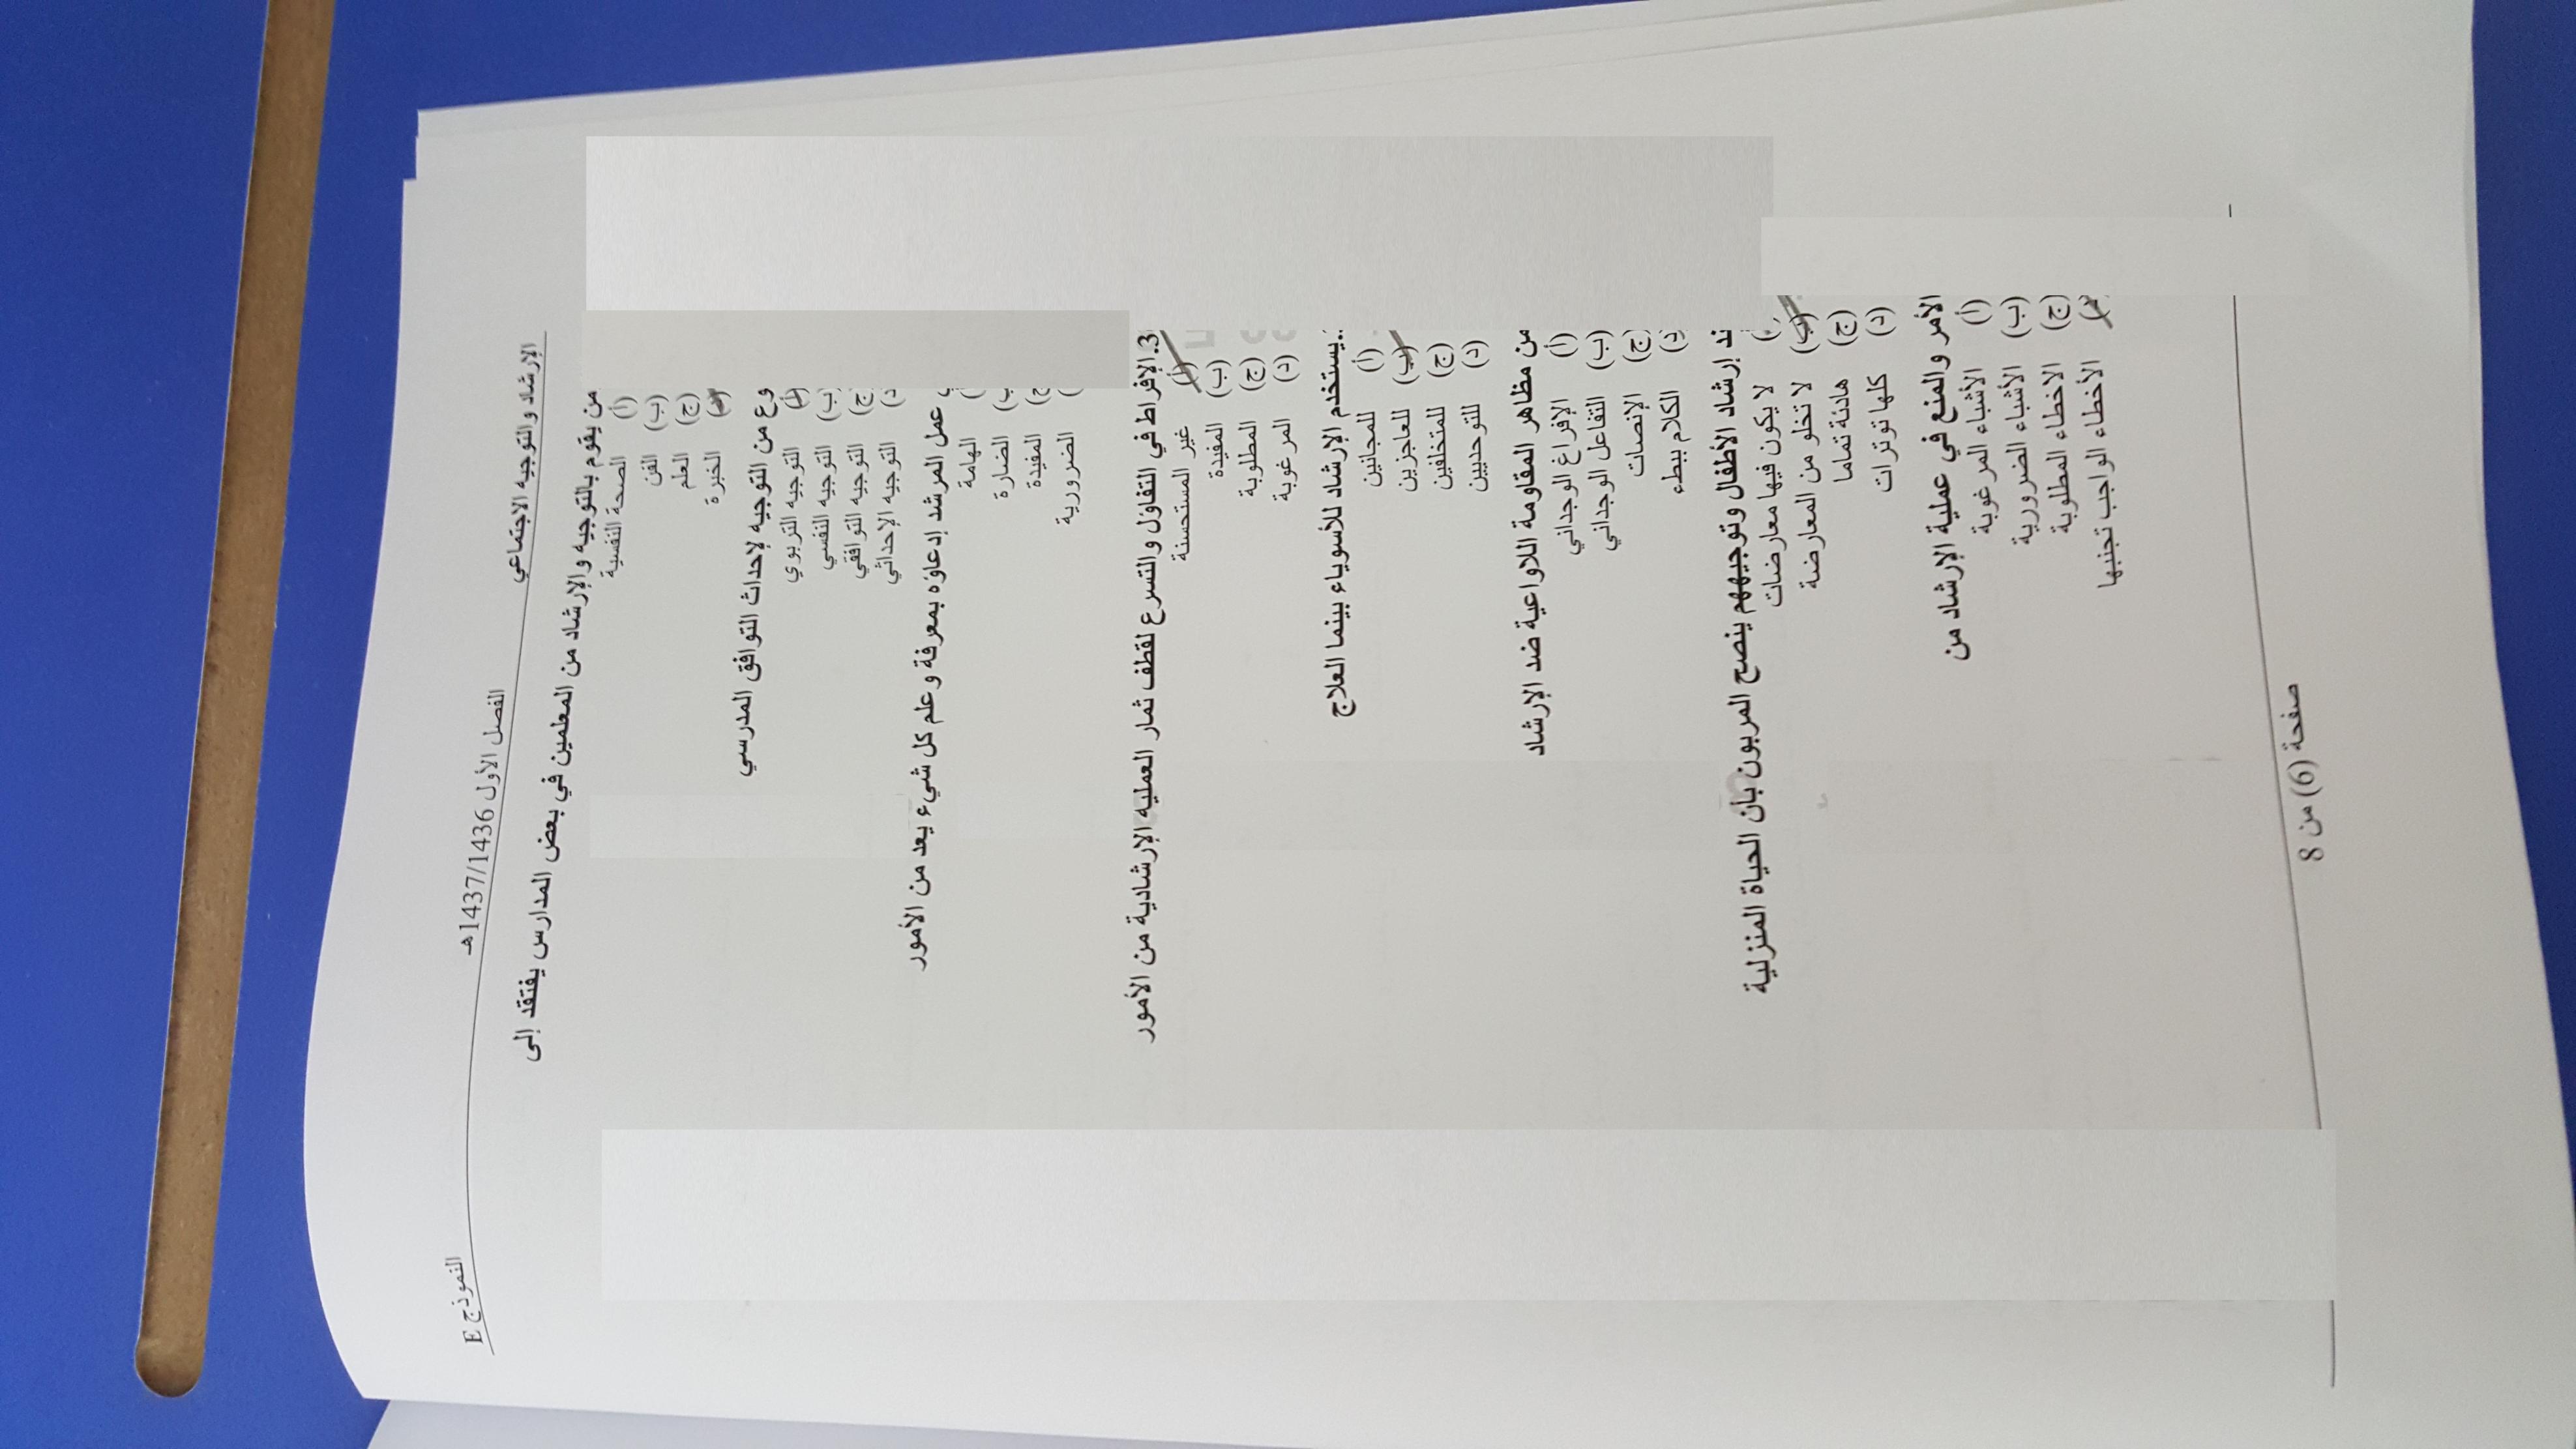 الإرشاد والتوجيه الاجتماعي الفصل الأول 1437/1436هـ النموذج E
من يقوم بالتوجيه والإرشاد من المعلمين في بعض المدارس يفتقد إلى
(أ) الصحة النفسية
(ب) الفن
(ج) العلم
الخبرة
وع من التوجيه لإحداث التوافق المدرسي
(أ) التوجيه التربوي
(ب) التوجيه النفسي
(ج) التوجيه التوافقي
(د) التوجيه الإحداثي
عمل المرشد إدعاؤه بمعرفة وعلم كل شيء يعد من الأمور
الهامة
الضارة
المفيدة
الضرورية
3. الإفراط في التفاؤل والتسرع لقطف ثمار العملية الإرشادية من الأمور
(أ) غير المستحسنة
(ب) المفيدة
(ج) المطلوبة
(د) المرغوبة
يستخدم الإرشاد للأسوياء بينما العلاج
(أ) للمجانين
(ب) للعاجزين
(ج) للمتخلفين
(د) للتوحديين
من مظاهر المقاومة اللاواعية ضد الإرشاد
(أ) الإفراغ الوجداني
(ب) التفاعل الوجداني
(ج) الإنصات
(د) الكلام ببطء
ند إرشاد الأطفال وتوجيههم ينصح المربون بأن الحياة المنزلية
لا يكون فيها معارضات
(ب) لا تخلو من المعارضة
(ج) هادئة تماما
(د) كلها توترات
الأمر والمنع في عملية الإرشاد من
(أ) الأشياء المرغوبة
(ب) الأشياء الضرورية
(ج) الاخطاء المطلوبة
الأخطاء الواجب تجنبها
صفحة (6) من 8